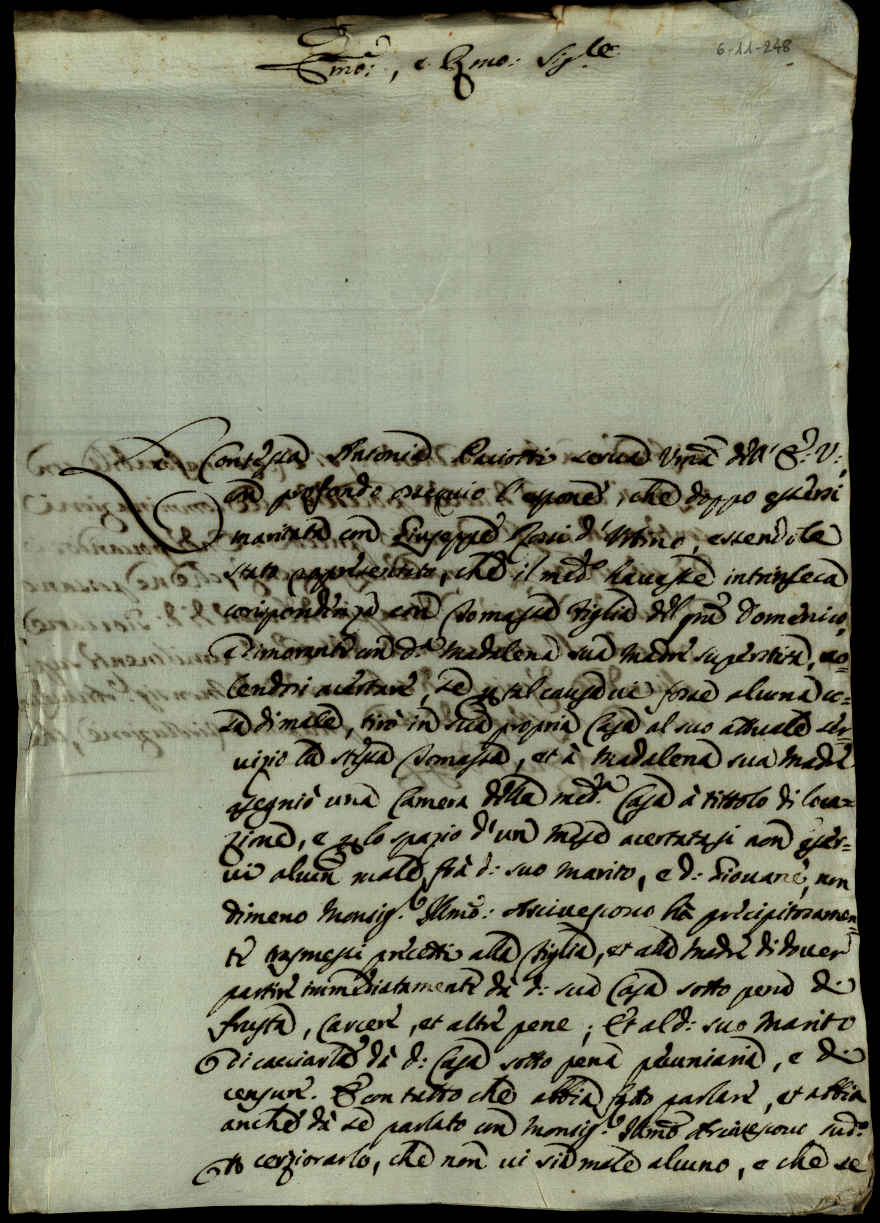 6-11-248
Em̃o:, e Rmo: Sig.re
La Contessa Antonia Paciotti serva Vmã dell' E: V:,
con profondo ossequio l'espone, che doppo essersi
maritata con Giuseppe Rossi d'Urbino, essendole
stato rappresentato, che il med.o havesse intrinseca
corispondenza con Tomassa figlia del qm̃ Domenico,
e dimorante con d.a Madalena sua Madre superstite, vo-
lendosi acertare, se p tal causa vi fosse alcuna co-
sa di male, tirò in sua propria Casa al suo attuale ser-
vizio la stessa Tomassa, et à Madalena sua Madre
assegnò una Camera della med.a Casa à tittolo di loca=
zione, e p lo spazio d'un mese acertatasi non esser=
vi alcun male frà d: suo marito, e d: Giovane, non
dimeno Monsig.r Illmõ: Arcivescovo hà precipitosamen=
te trasmessi precetti alla figlia, et alla Madre di dover
partire immediatamente dà d: sua Casa sotto pena di
frusta, Carcere, et altre pene; Et al d: suo Marito
di cacciarle dà d: Casa sotto pena pecuniaria, e di
censure. E con tutto che abbia fatto parlare, et abbia
anche dà se parlato con Monsig.r Illmõ Arcivescovo sud.o
p cerziorarlo, che non vi sia male alcuno, e che se